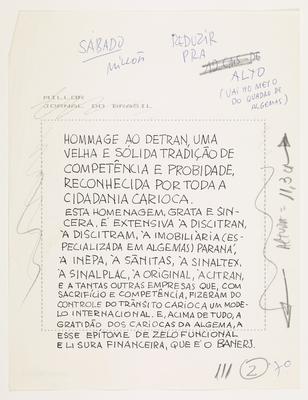 SÁBADO
MILLÔR
REDUZIR
PRA
12 CMS DE
ALTO
(VAI NO MEIO
DO QUADRO DE
ALGEMAS)
MILLOR
JORNAL DO BRASIL
HOMMAGE AO DETRAN, UMA
VELHA E SÓLIDA TRADIÇÃO DE
COMPETÊNCIA E PROBIDADE,
RECONHECIDA POR TODA A
CIDADANIA CARIOCA.
ESTA HOMENAGEM, GRATA E SIN-
CERA, É EXTENSIVA À DISCITRAN,
À DISCITRAM, À IMOBILIÁRIA (ES-
PECIALIZADA EM ALGEMAS) PARANÁ,
À INEPA, À SÂNITAS, À SINALTEX,
À SINALPLAC, À ORIGINAL, À CITRAN,
E A TANTAS OUTRAS EMPRESAS QUE, COM
SACRIFÍCIO E COMPETÊNCIA, FIZERAM DO
CONTROLE DO TRÂNSITO CARIOCA UM MODE-
LO INTERNACIONAL. E, ACIMA DE TUDO, A
GRATIDÃO DOS CARIOCAS DA ALGEMA, A
ESSE EPÍTOME DE ZELO FUNCIONAL
E LISURA FINANCEIRA, QUE É O BANERJ.
ALTURA = 11,3 CM
2
70